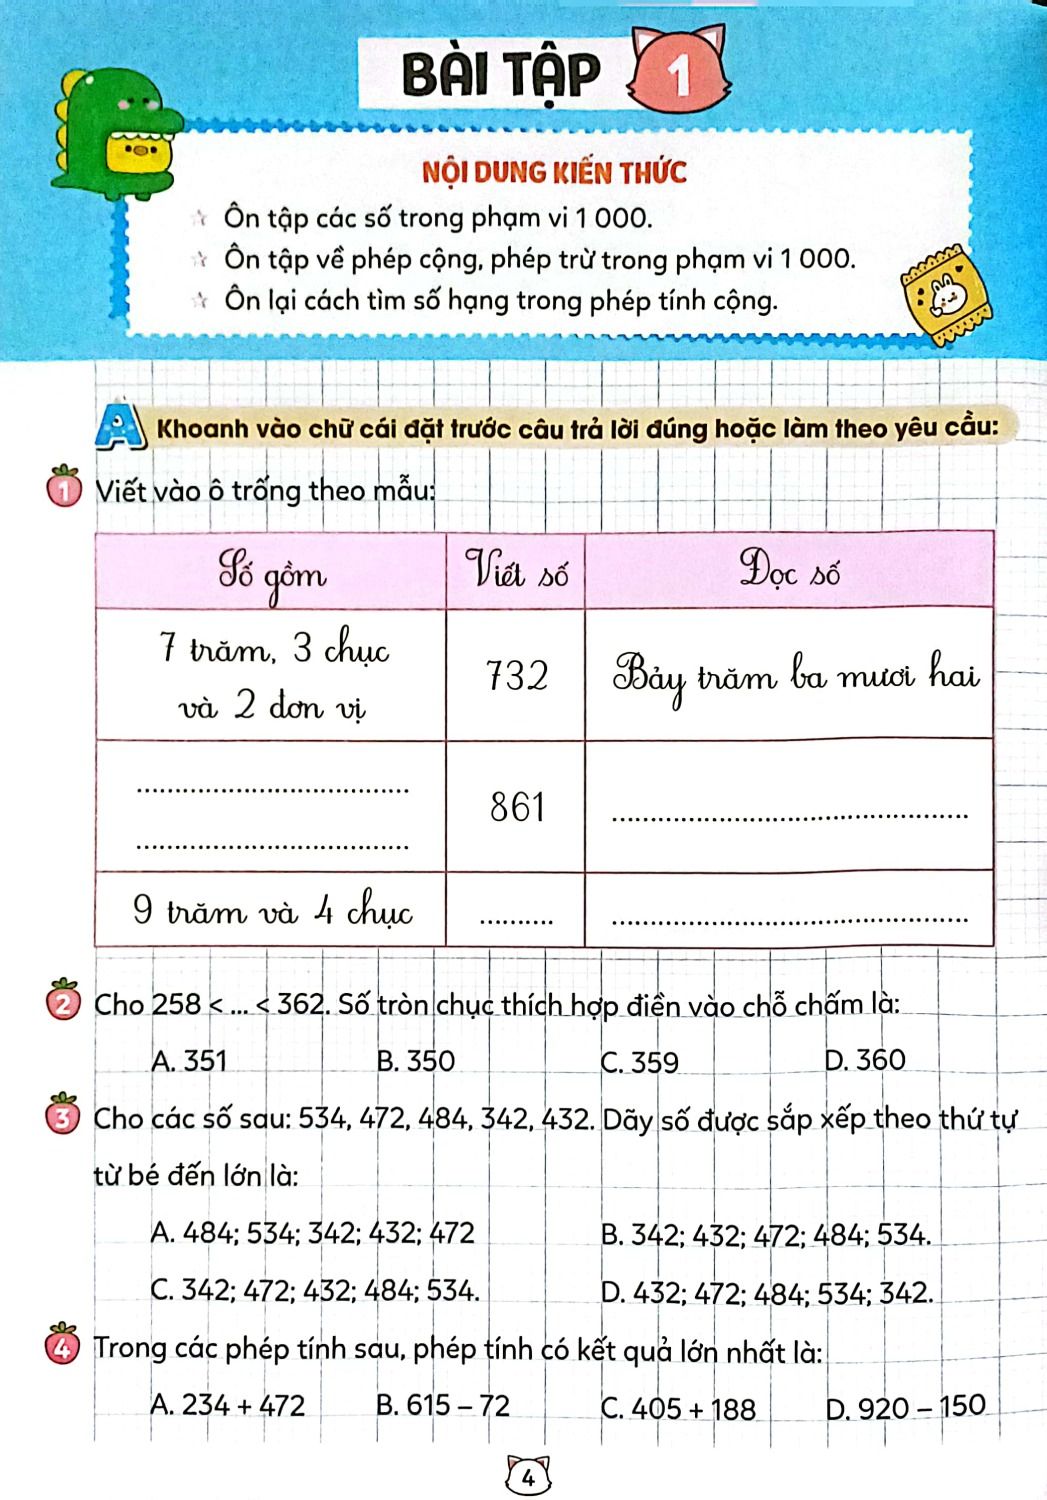 BÀI TẬP 1
NỘI DUNG KIẾN THỨC
Ôn tập các số trong phạm vi 1 000.
Ôn tập về phép cộng, phép trừ trong phạm vi 1 000.
Ôn lại cách tìm số hạng trong phép tính cộng.
A Khoanh vào chữ cái đặt trước câu trả lời đúng hoặc làm theo yêu cầu:
1 Viết vào ô trống theo mẫu:
Số gồm Viết số Đọc số
7 trăm, 3 chục
và 2 đơn vị
732
Bảy trăm ba mươi hai
....................................
....................................
861
...............................................
9 trăm và 4 chục .......... ...............................................
2 Cho 258 < ... < 362. Số tròn chục thích hợp điền vào chỗ chấm là:
A. 351 B. 350 C. 359 D. 360
3 Cho các số sau: 534, 472, 484, 342, 432. Dãy số được sắp xếp theo thứ tự
từ bé đến lớn là:
A. 484; 534; 342; 432; 472 B. 342; 432; 472; 484; 534.
C. 342; 472; 432; 484; 534. D. 432; 472; 484; 534; 342.
4 Trong các phép tính sau, phép tính có kết quả lớn nhất là:
A. 234 + 472 B. 615 – 72 C. 405 + 188 D. 920 – 150
4